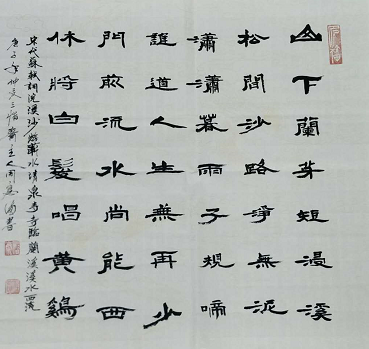 山下蘭芽短浸溪
松間沙路淨無泥
瀟瀟暮雨子規啼
誰道人生無再少
門前流水尚能西
休將白髮唱黃鷄
宋代蘇軾詞浣溪沙游蘄水清泉寺寺臨蘭溪溪水西流
庚子年仲冬三 齋主人周 書